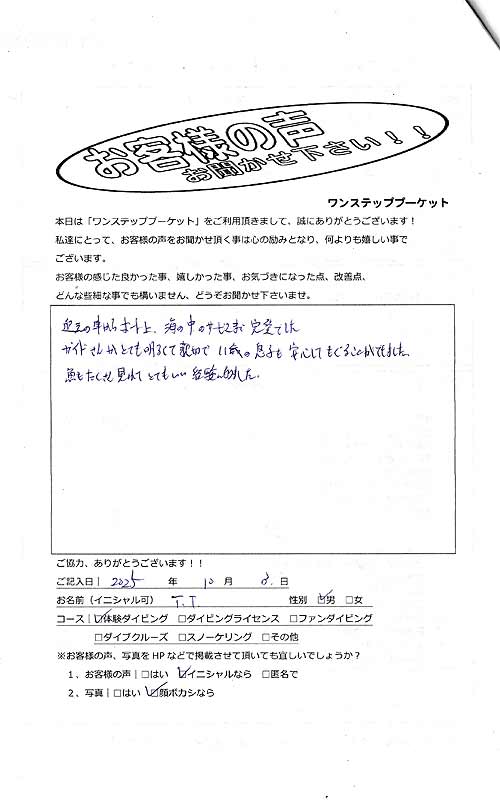 お客様の声
お聞かせ下さい！！
ワンステッププーケット
本日は「ワンステッププーケット」をご利用頂きまして、誠にありがとうございます！
私達にとって、お客様の声をお聞かせ頂く事は心の励みとなり、何よりも嬉しい事で
ございます。
お客様の感じた良かった事、嬉しかった事、お気づきになった点、改善点、
どんな些細な事でも構いません、どうぞお聞かせ下さいませ。
海の中のサービスまで 完璧でした
ガイドさんがとても明るくて親切で 11歳の息子も 安心してもぐることができました。
魚もたくさん見れて とてもいい 経験になりました。
ご協力、ありがとうございます！！
ご記入日| 2025 年 10 月 8 日
お名前（イニシャル可） T.T 性別 ☑男 □女
コース| ☑体験ダイビング □ダイビングライセンス □ファンダイビング
□ダイブクルーズ □スノーケリング □その他
※お客様の声、写真を HP などで掲載させて頂いても宜しいでしょうか？
１．お客様の声 | □はい ☑イニシャルなら □匿名で
２．写真 | □はい ☑顔ボカシなら